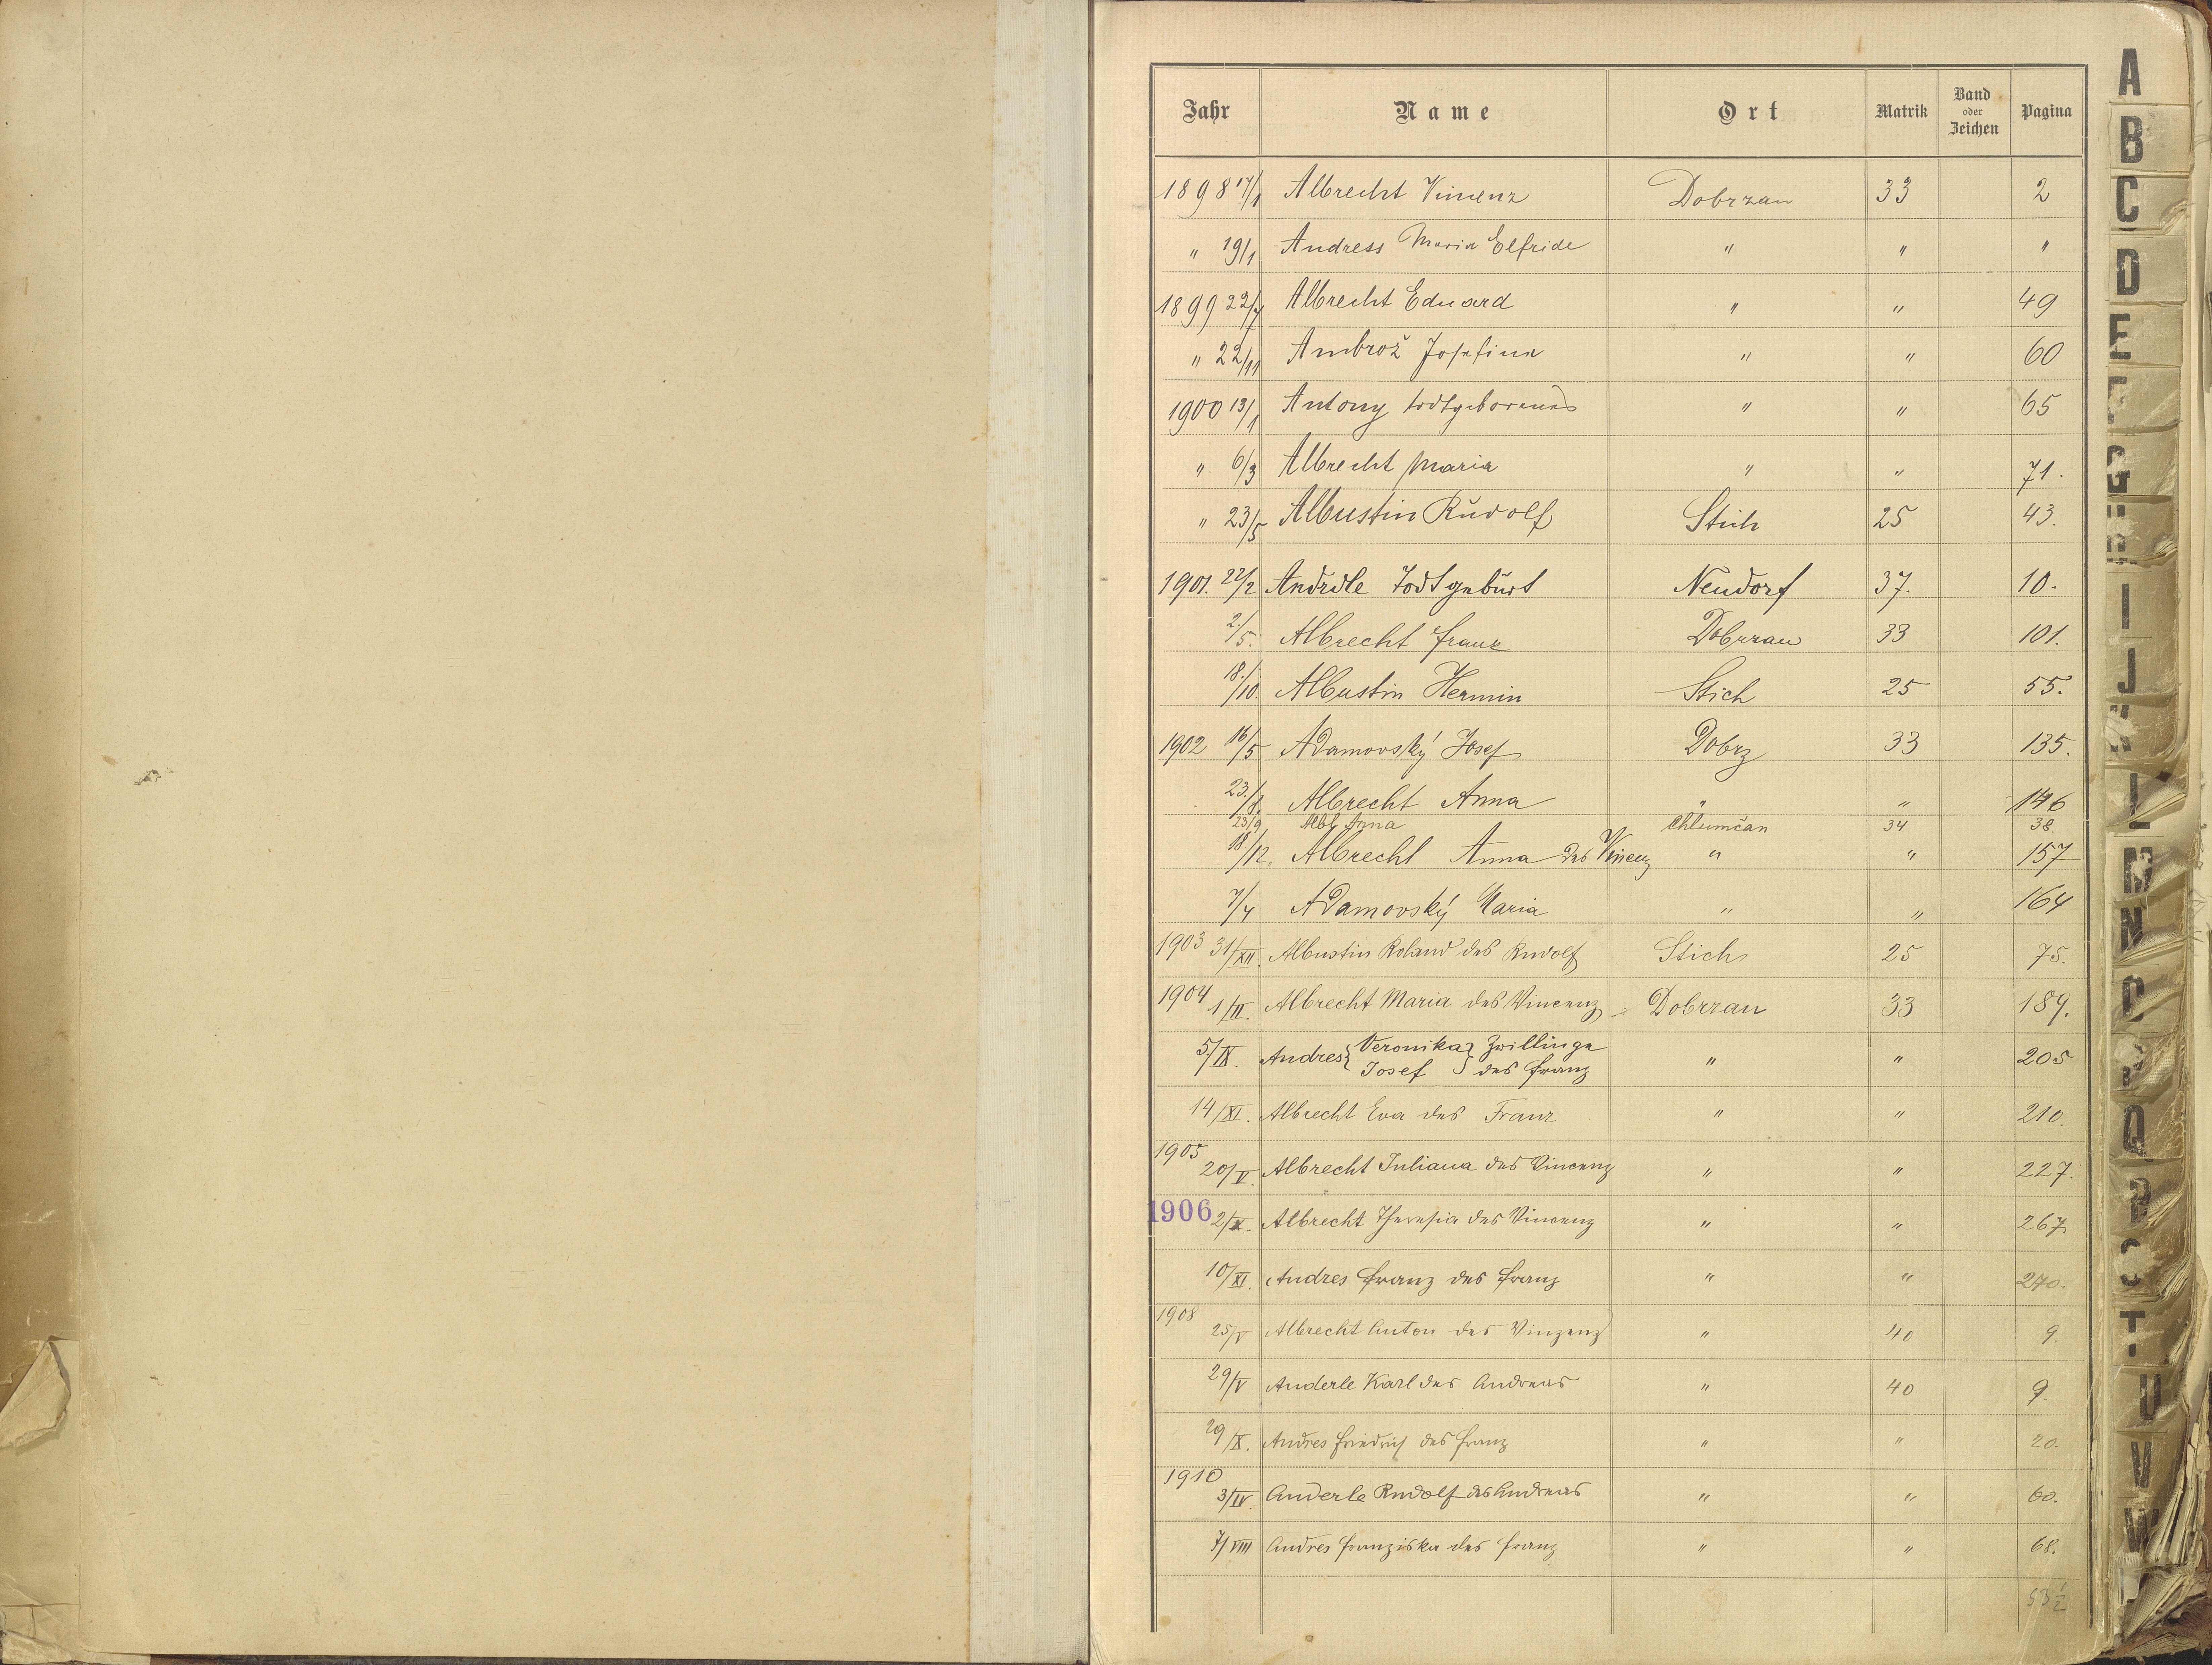 Jahr Name Ort Matrik Band oder Zeichen Pagina
1898 17/1 Albrecht Vinzenz Dobrzan 33 2
" 19/1 Andress Maria Elfride " " "
1899 22/7 Albrecht Eduard " " 49
" 22/11 Ambrož Josefina " " 60
1900 13/1 Antony todtgeborenes " " 65
" 6/3 Albrecht Maria " " 71.
" 23/5 Albustin Rudolf Stich 25 43.
1901. 22/2 Andrdle Todtgeburt Neudorf 37. 10.
2./5. Albrecht Franz Dobrzan 33 101.
18./10. Albustin Hermin Stich 25 55.
1902 16/5 Adamovský Josef Dobrz 33 135.
23./8. Albrecht Anna " " 146
23/9 Albl Anna Chlumčan 34 38.
18/12. Albrecht Anna des Vinenz " " 157
7/4 Adamovský Maria " " 164
1903 31/XII. Albustin Roland des Rudolf Stich 25 75.
1904 1/II. Albrecht Maria des Vincenz Dobrzan 33 189.
5/IX. Andres { Veronika Josef } Zwillinge des Franz " " 205
14/XI. Albrecht Eva des Franz " " 210.
1905
20/V. Albrecht Juliana des Vincenz " " 227.
1906 2/X. Albrecht Theresia des Vincenz " " 267.
10/XI. Andres Franz des Franz " " 270.
1908
25/V Albrecht Anton des Vinzenz " 40 9.
29/V Anderle Karl des Andreas " 40 9.
29/X. Andres Friedrich des Franz " " 20.
1910
3/IV. Anderle Rudolf des Andreas " " 60.
7/VIII Andres Franziska des Franz " " 68.
53 1/2
A
B
C
D
E
F
G
H
I
J
K
L
M
N
O
P
Q
R
S
T
U
V
W